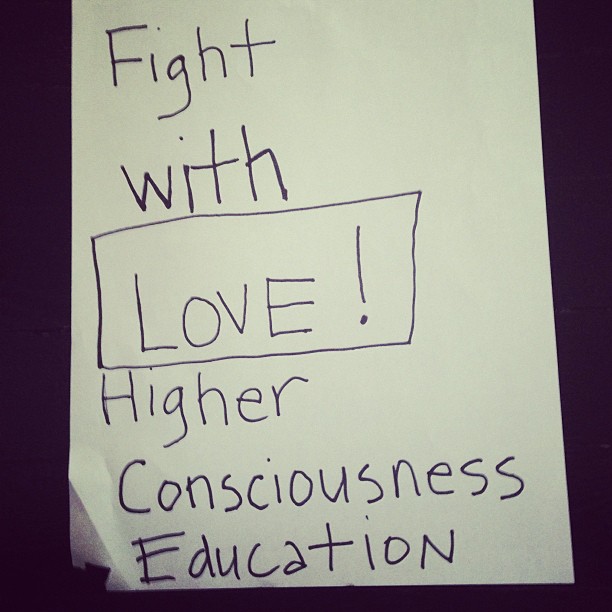 Fight
with
LOVE!
Higher
Consciousness
Education